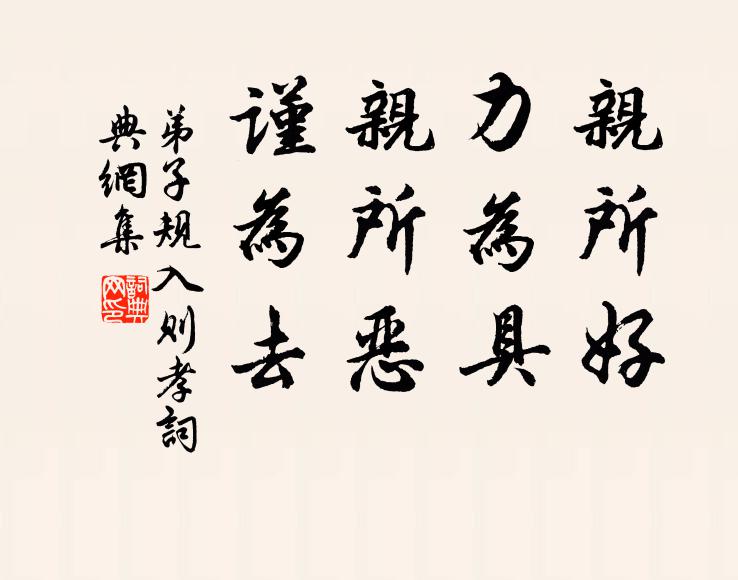 親所好
力為具
親所惡
謹為去
弟子規入則孝詞
典網集
詞典
网印